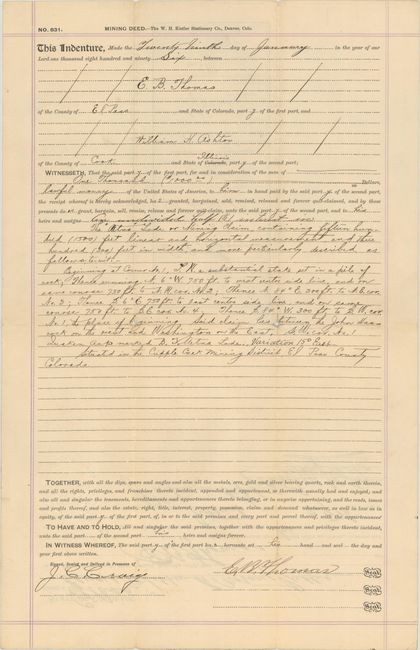 NO. 631.
MINING DEED.—The W. H. Kistler Stationery Co., Denver, Colo.
This Indenture, Made the Twenty Ninth day of January in the year of our
Lord one thousand eight hundred and ninety Six between
E. B. Thomas
of the County of El Paso and State of Colorado, part y of the first part, and
William H. Ashton
Illinois
of the County of Cook and State of Colorado, part y of the second part;
WITNESSETH, That the said part y of the first part, for and in consideration of the sum of
One Thousand Dollars,
lawful money of the United States of America, to him in hand paid by the said part y of the second part,
the receipt whereof is hereby acknowledged, ha s granted, bargained, sold, remised, released and forever quit-claimed, and by these
presents do es grant, bargain, sell, remise, release and forever quit-claim, unto the said part y of the second part, and to his
heirs and assigns
The Aetna Lode or Mining Claim, containing fifteen hun-
dred (1500) feet linear and horizontal measurement and three
hundred (300) feet in width and more particularly described as
follows, to wit:
Beginning at Corner No. 1, a substantial stake set in a pile of
rock; Thence running N. 6° W. 750 ft. to west center side line, and on
same course 750 ft. to cor. No. 2; Thence 300 ft. to cor.
No. 3; Thence S. 6° E. 750 ft. to east center side line and on same
course 750 ft. to S.E. cor. No. 4; Thence 300 ft. to S.W. cor.
No. 1, the place of beginning. Said claim lies between the John
on the west and Washington on the East. No. 1
Lode. Variation 15° East.
Situated in the Cripple Creek Mining District El Paso County
Colorado
TOGETHER, with all the dips, spurs and angles and also all the metals, ores, gold and silver bearing quartz, rock and earth therein,
and all the rights, privileges, and franchises thereto incident, appended and appurtenant, or therewith usually had and enjoyed; and
also all and singular the tenements, hereditaments and appurtenances thereto belonging, or in anywise appertaining, and the rents, issues
and profits thereof; and also the estate, right, title, interest, property, possession, claim and demand whatsoever, as well in law as in
equity, of the said part y of the first part, of, in or to the said premises and every part and parcel thereof, with the appurtenances
TO HAVE AND TO HOLD, All and singular the said premises, together with the appurtenances and privileges thereto incident,
unto the said part of the second part his heirs and assigns forever.
IN WITNESS WHEREOF, The said part y of the first part ha s hereunto set his hand and seal the day and
year first above written.
Signed, Sealed and Delivered in Presence of
J. C. Craig
E. B. Thomas
Seal
Seal
Seal